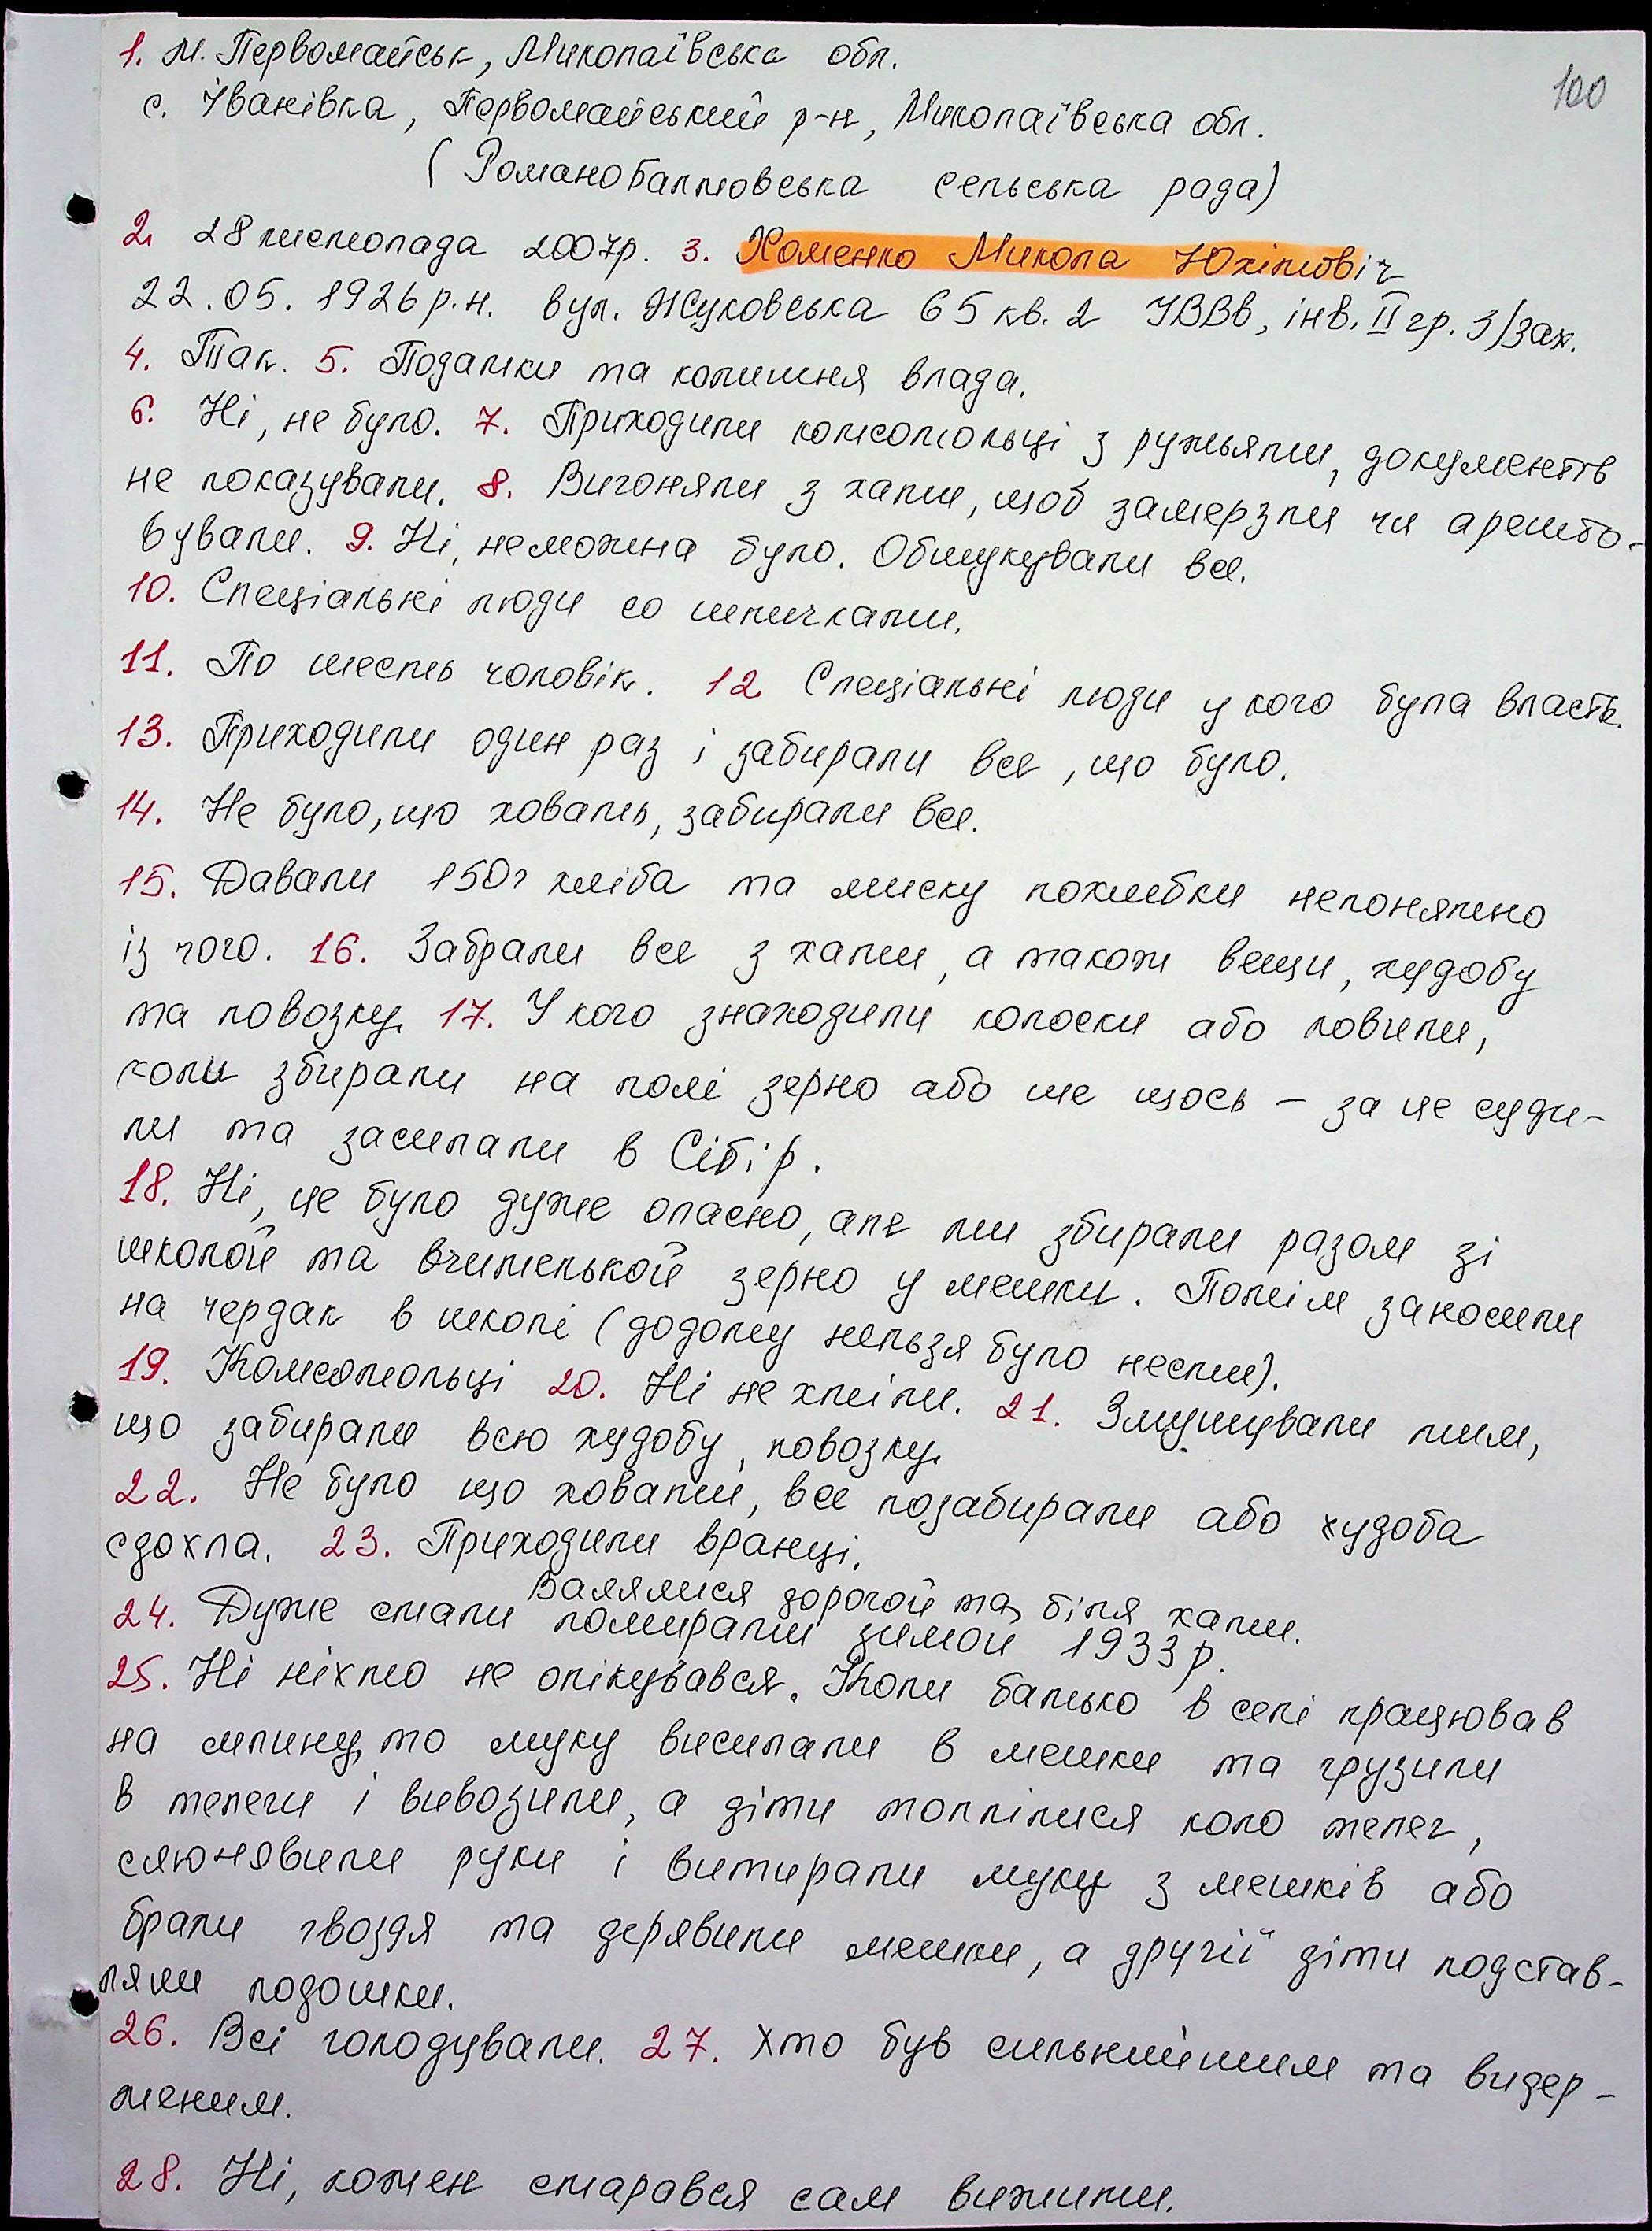 1. м. Первомайськ, Миколаївська обл.
100
с. Іванівка, Первомайський р-н, Миколаївська обл.
(Романобалтовська сельська рада)
2. 28 листопада 2007р. 3. Хоменко Микола Юхімовіч
22.05.1926 р.н. вул. Жуковська 65 кв. 2 УВВв, інв. II гр. з/зах.
4. Так. 5. Податки та колишня влада.
6. Ні, не було. 7. Приходили комсомольці з ружьями, документів
не показували. 8. Вигоняли з хати, щоб замерзли чи арешто-
вували. 9. Ні, неможна було. Обшукували все.
10. Спеціальні люди со шпичками.
11. По шесть чоловік. 12. Спеціальні люди у кого була власть.
13. Приходили один раз і забирали все, що було.
14. Не було, що ховать, забирали все.
15. Давали 150г хліба та миску похлибки непонятно
із чого. 16. Забрали все з хати, а також вещи, худобу
та повозку. 17. У кого знаходили колоски або ловили,
коли збирали на полі зерно або ше щось – за це суди-
ли та засилали в Сібір.
18. Ні, це було дуже опасно, але ми збирали разом зі
школой та вчителькой зерно у мешки. Потім заносили
на чердак в школі (додому нельзя було нести).
19. Комсомольці 20. Ні не хтіли. 21. Змушували тим,
що забирали всю худобу, повозку.
22. Не було що ховати, все позабирали або худоба
сдохла. 23. Приходили вранці.
Валялися дорогой та біля хати.
24. Дуже стали помирати зимой 1933 р.
25. Ні ніхто не опікувався. Коли батько в селі працював
на млину, то муку висипали в мешки та грузили
в телеги і вивозили, а діти толпілися коло телег,
слюнявили руки і витирали муку з мешків або
брали гвоздя та дерявили мешки, а другії діти подстав-
ляли лодошки.
26. Всі голодували. 27. Хто був сильнийшим та видер-
жаним.
28. Ні, кожен старався сам вижити.